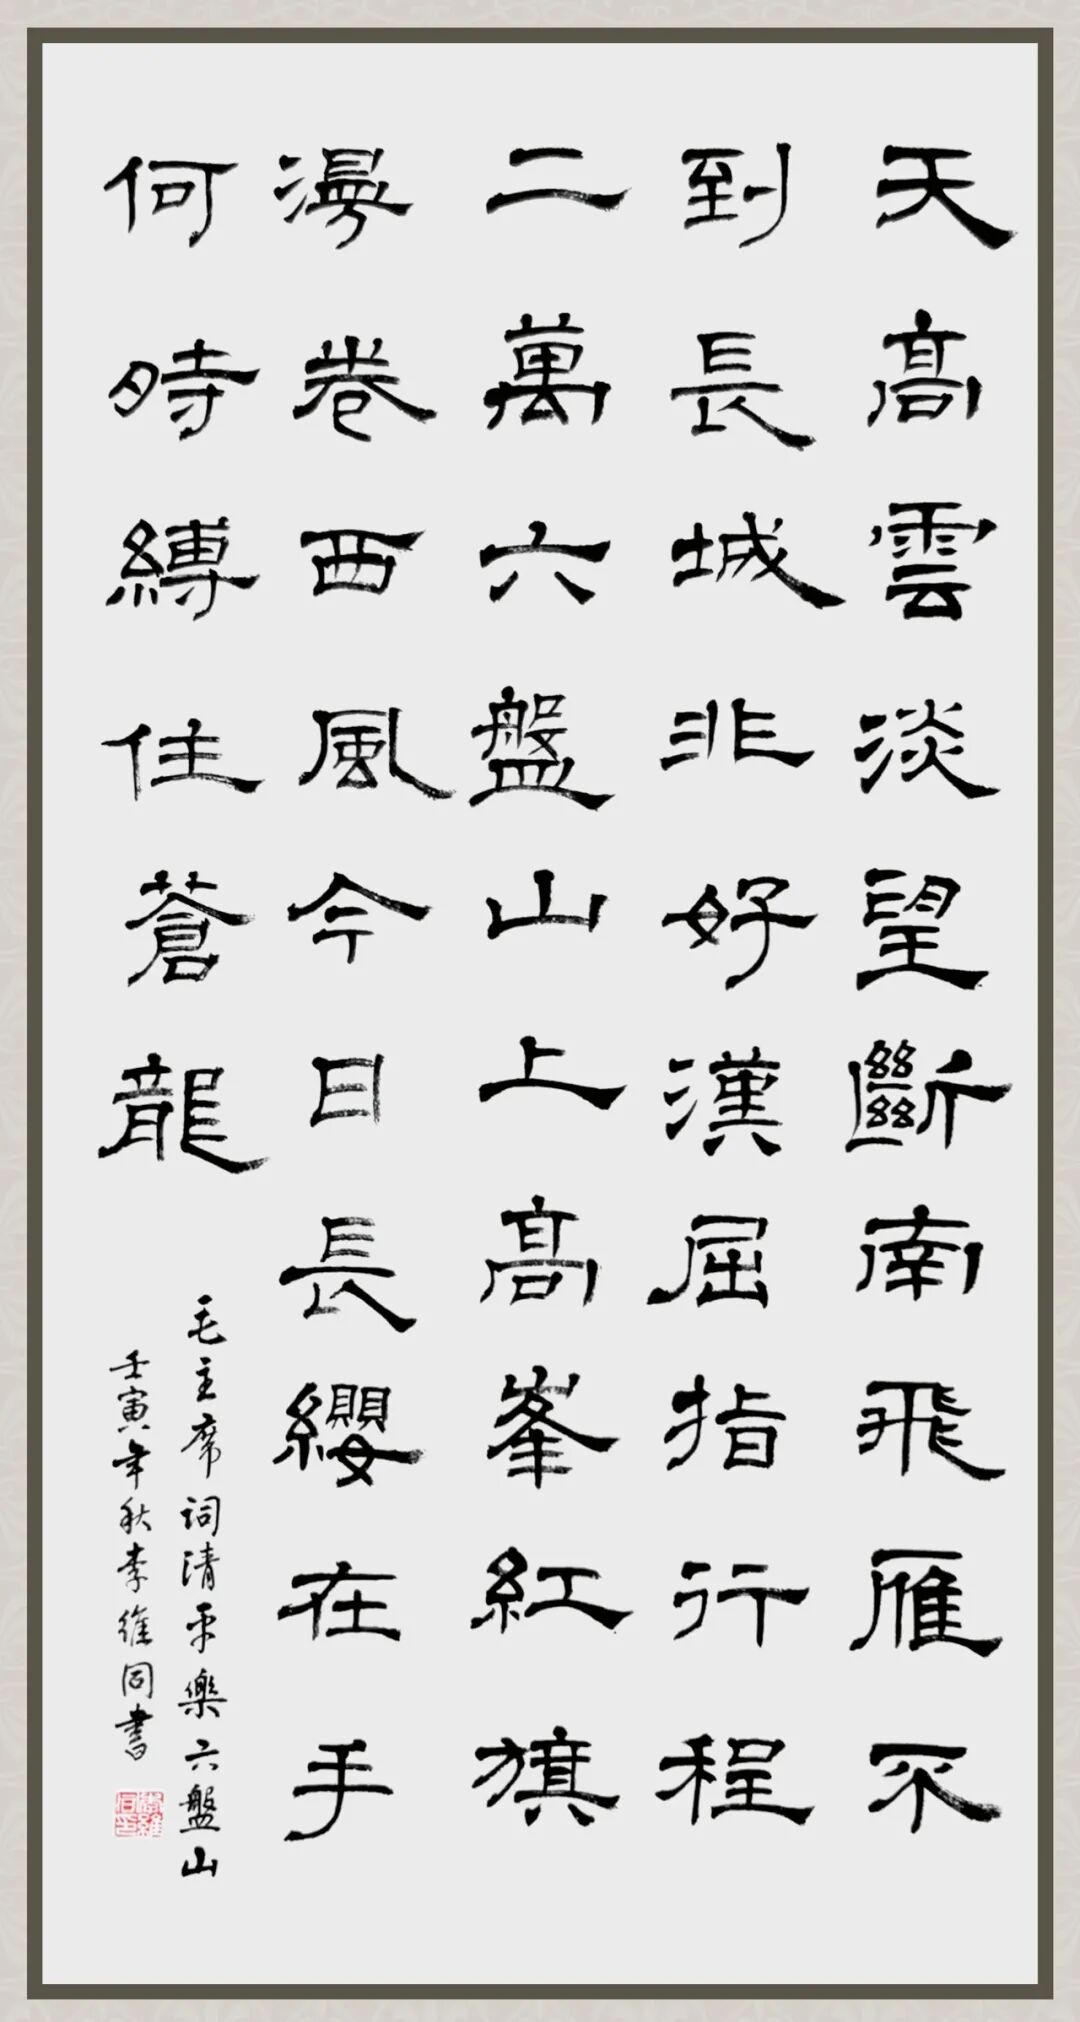 天高雲淡望斷南飛雁不
到長城非好漢屈指行程
二萬六盤山上高峯紅旗
漫卷西風今日長纓在手
何時縛住蒼龍
毛主席词清平樂六盤山
壬寅年秋李維同書